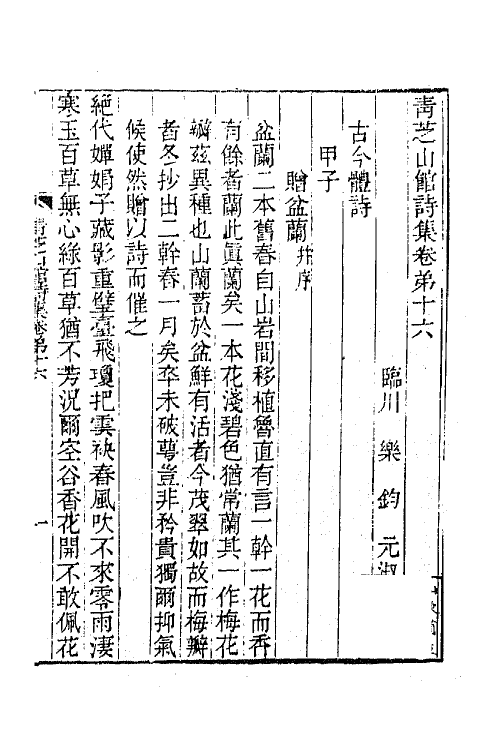 青芝山館詩集卷第十六
臨川 樂 鈞 元淑
古今體詩
甲子
贈盆蘭并序
盆蘭二本舊春自山岩間移植魯直有言一幹一花而香
有餘者蘭此眞蘭矣一本花淺碧色猶常蘭其一作梅花
瓣茲異種也山蘭蓄於盆鮮有活者今茂翠如故而梅瓣
者冬抄出二幹春一月矣卒未破萼豈非矜貴獨爾抑氣
候使然贈以詩而催之
絶代嬋娟子藏影重璧臺飛瓊把雲袂春風吹不來零雨淒
寒玉百草無心綠百草猶不芳況爾空谷香花開不敢佩花
青芝山館詩集卷第十六
一